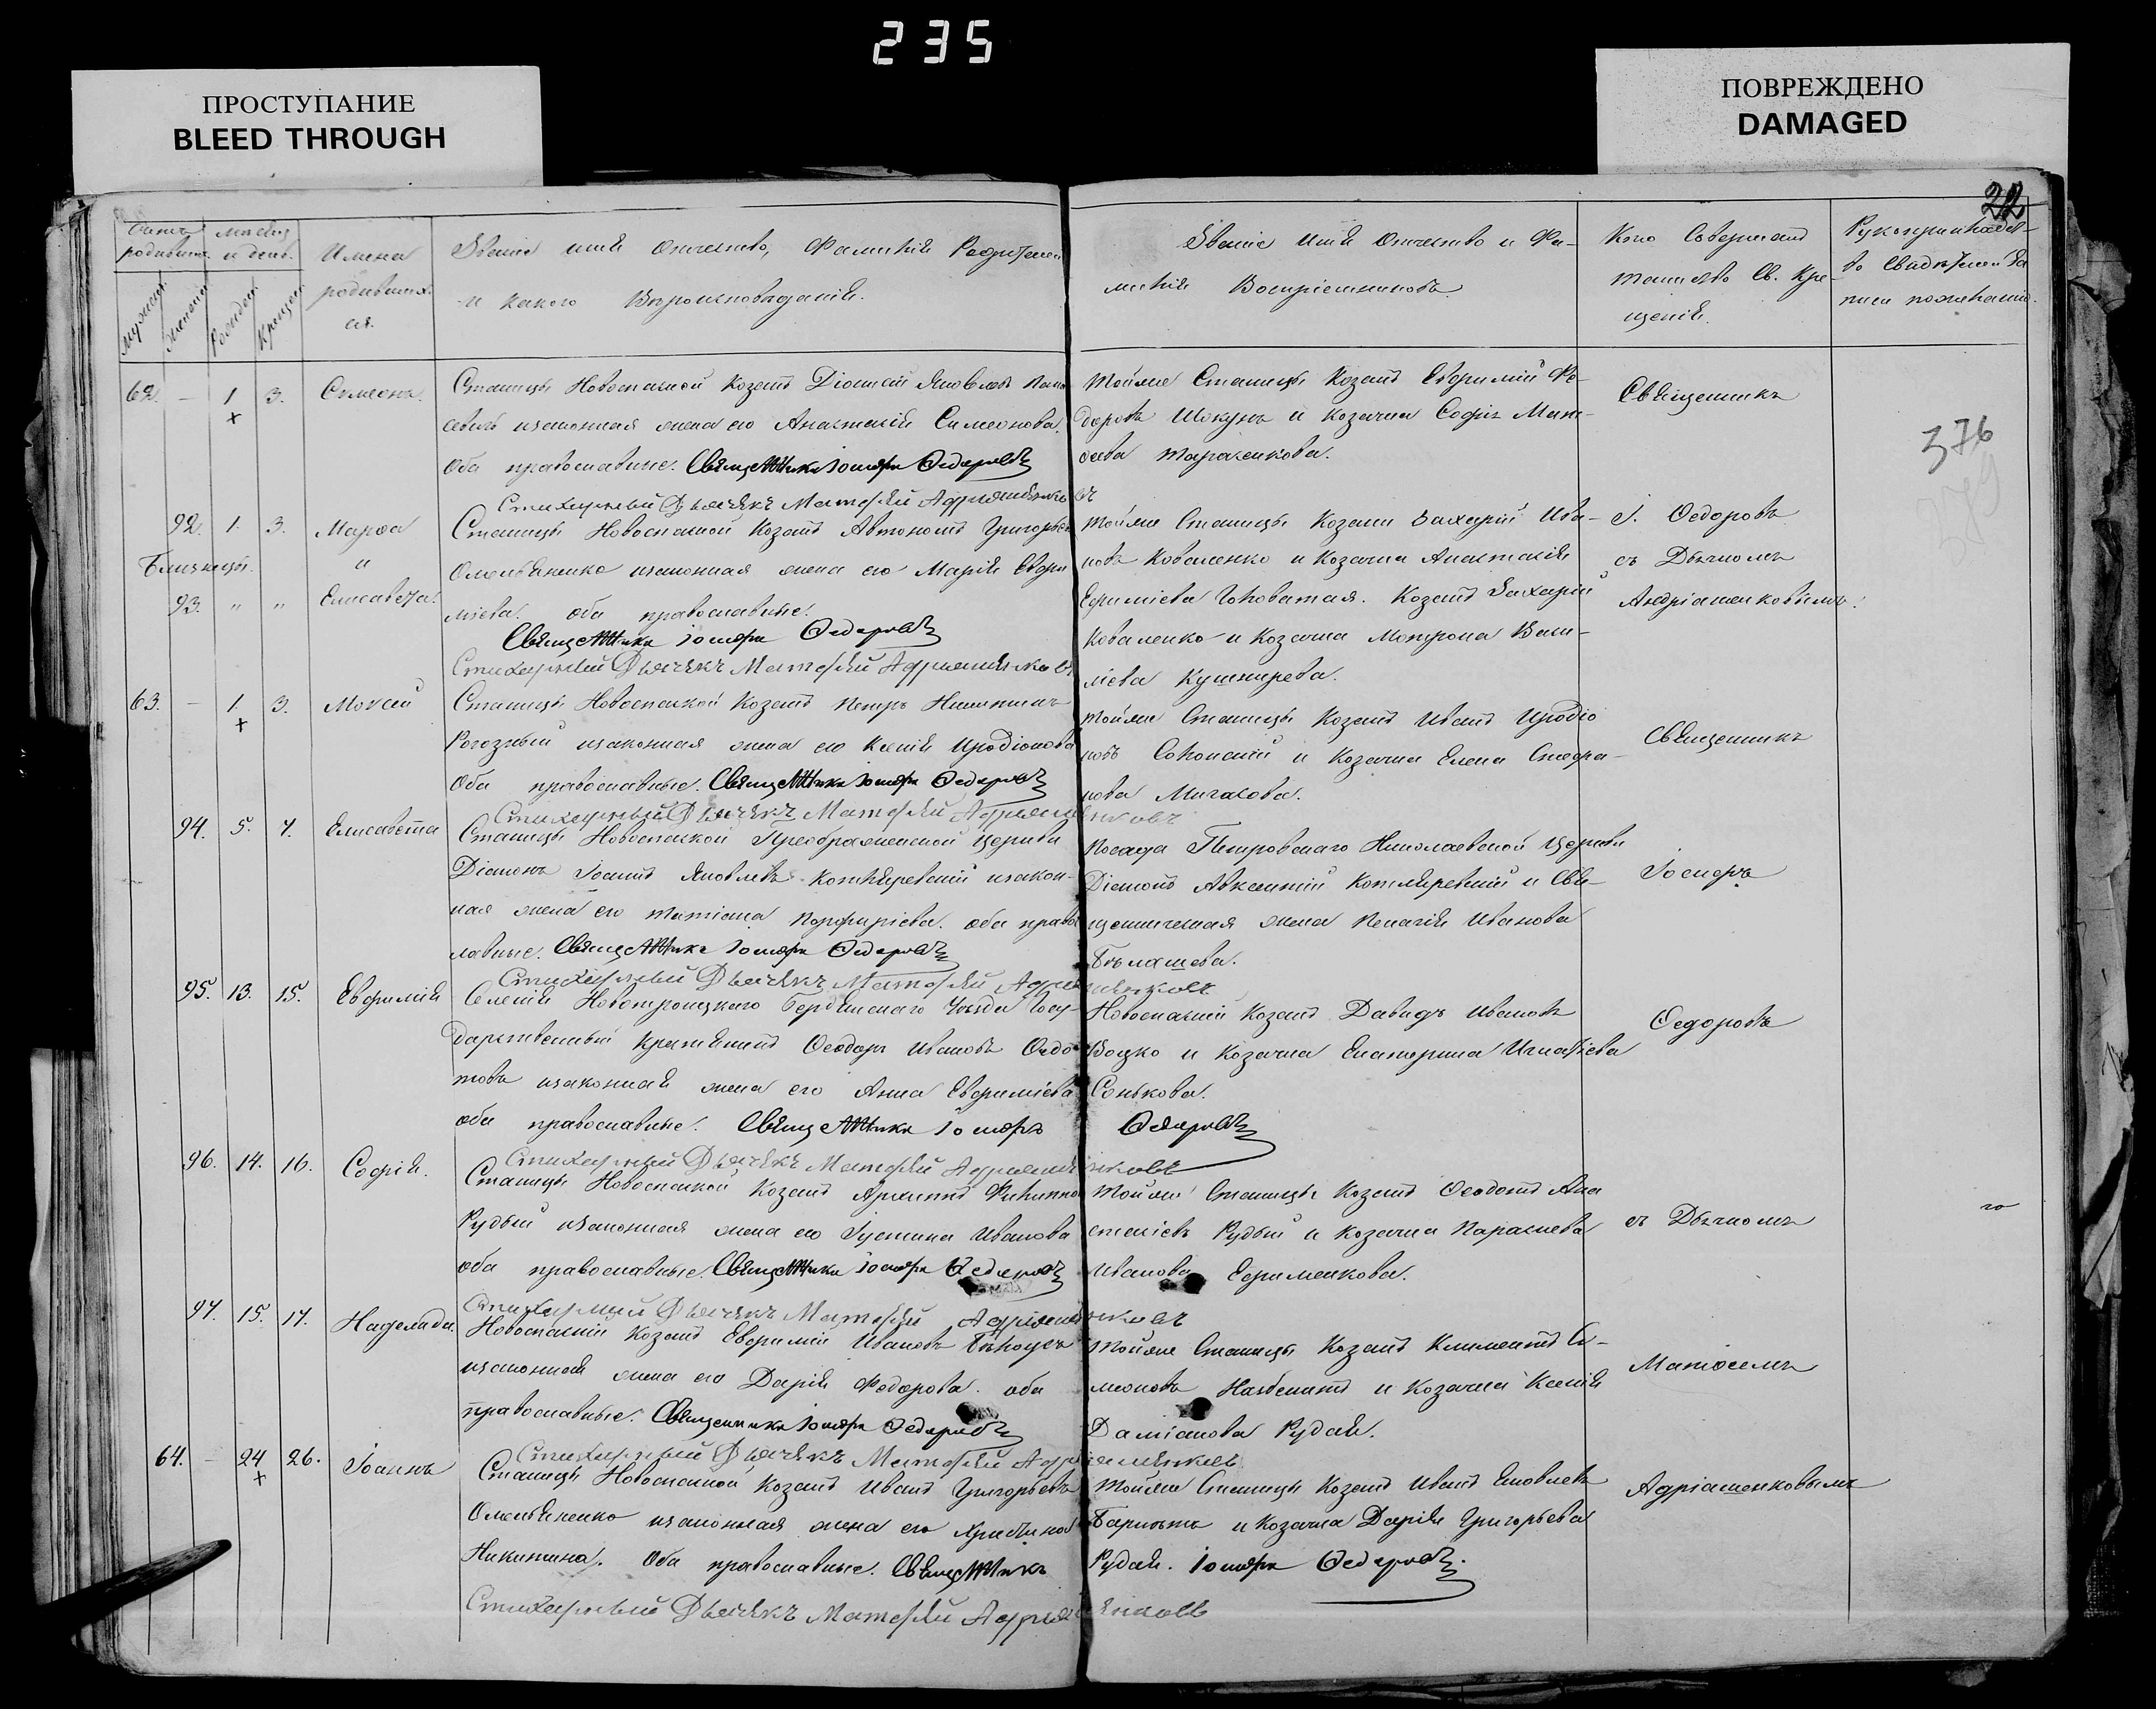 235
ПРОСТУПАНИЕ
BLEED THROUGH
ПОВРЕЖДЕНО
DAMAGED
22
Счетъ родившихся
мужеска
женска
Мѣсяцъ и день
Рожденія
Крещенія
Имена
родивших
ся.
Званіе имя отчество, Фамилія Родителей
и какого Вѣроисповѣданія.
Званіе имя отчество и Фа-
милія Воспріемниковъ.
Кто Совершалъ
таинство Св. Кре-
щенія.
Рукоприкладст-
во Свидѣтелей за
писи по желанію.
62. – 1 3. Симеонъ.
Станицы Новоспаской Козакъ Діонисій Яковлевъ
законная жена его Анастасія Симеонова.
Оба православные. Священникъ Іосифъ Федоровъ
Стихарный Дьячекъ Матфей Адріяшенковъ
Тойже Станицы Козакъ Евфимій Фе-
доровъ Шокунъ и Козачка Софія Мат-
ѳеева Тарасенкова.
Священникъ
376
379
92. 1. 3. Марѳа
Близнецы. "
93. " " Елисавета.
Станицы Новоспаской Козакъ Автономъ Григорьевъ
Омельяненко законная жена его Марія Евфи
міева. оба православные.
Священникъ Іосифъ Федоровъ
Стихарный Дьячекъ Матфей Адріяшенковъ
Тойже Станицы Козакъ Захарій Ива-
новъ Коваленко и Козачка Анастасія
Ефиміева Головатая. Козакъ Захарій
Коваленко и Козачка Мотрона Васи-
ліева Кушнирева.
І. Ѳедоровъ
съ Дьячкомъ
Андріашенковымъ.
63. – 1. 3. Мокей
Станицы Новоспаской Козакъ Петръ Никитинъ
Рогозный законная жена его Ксенія Иродіонова
Оба православные. Священникъ Іосифъ Федоровъ
Стихарный Дьячекъ Матфей Адріяшенковъ
Тойже Станицы Козакъ Иванъ Иродіо
новъ Сокольскій и Козачка Елена Стефа-
нова Мигалова.
Священникъ
94. 5. 7. Елисавета
Станицы Новоспаской Преображенской Церкви
Діаконъ Іоаннъ Яковлевъ Котляревскій закон-
ная жена его Татіана Порфиріева. оба право
лавные. Священникъ Іосифъ Федоровъ
Стихарный Дьячекъ Матфей Адріяшенковъ
Посада Петровскаго Николаевской Церкви
Діаконъ Авксентій Котляревскій и Свя-
щенническая жена Пелагія Иванова
Бѣлашева.
Іосифъ
95. 13. 15. Евфимія
Селенія Новотроицкаго Бердянскаго Уѣзда Госу-
дарственный Крестьянинъ Ѳеодоръ Ивановъ Ѳедо
товъ законная жена его Анна Евфиміева
оба православные. Священникъ Іосифъ Ѳедоровъ
Стихарный Дьячекъ Матфей Адріяшенковъ
Новоспаскій Козакъ Давидъ Ивановъ
Воцко и Козачка Екатерина Игнатіева
Сонькова.
Ѳедоровъ
96. 14. 16. Софія.
Станицы Новоспаской Козакъ Архипъ Филиппов
Рудый законная жена его Іустина Иванова
оба православные. Священникъ Іосифъ Федоровъ
Стихарный Дьячекъ Матфей Адріяшенковъ
Тойже Станицы Козакъ Ѳеодотъ Ана
стасіевъ Рудый и Козачка Параскева
Иванова Ефименкова.
съ Дьячкомъ
97. 15. 17. Надежда.
Новоспаскій Козакъ Евфимій Ивановъ Бѣлоусъ
законная жена его Дарія Федорова. оба
православные. Священникъ Іосифъ Федоровъ
Стихарный Дьячекъ Матфей Адріяшенковъ
Тойже Станицы Козакъ Климентъ Си-
меоновъ и Козачка Ксенія
Даміанова Рудая.
Матѳеемъ
64. – 24 26. Іоаннъ
Станицы Новоспаской Козакъ Иванъ Григорьевъ
Омельяненко законная жена его Христина
Никитина. Оба православные. Священникъ
Стихарный Дьячекъ Матфей Адріяшенковъ
Тойже Станицы Козакъ Иванъ Яковлевъ
и Козачка Дарія Григорьева
Рудая. Іосифъ Федоровъ.
Адріашенковымъ